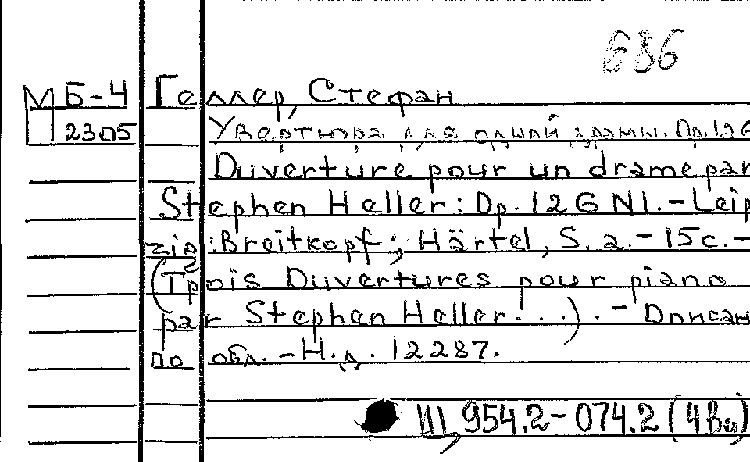 636
М Б-4 Геллер, Стефан
2305 Увертюра для одной драмы. Op.126
Ouverture pour un drame par
Stephen Heller: Op. 126 N1. - Leip
zig: Breitkopf; Härtel, S. a. - 15 c. -
(Trois Ouvertures pour piano
par Stephen Heller...). - Описан
по обл. - Н. д. 12287.
Ш, 954.2-074.2 (4Ви)